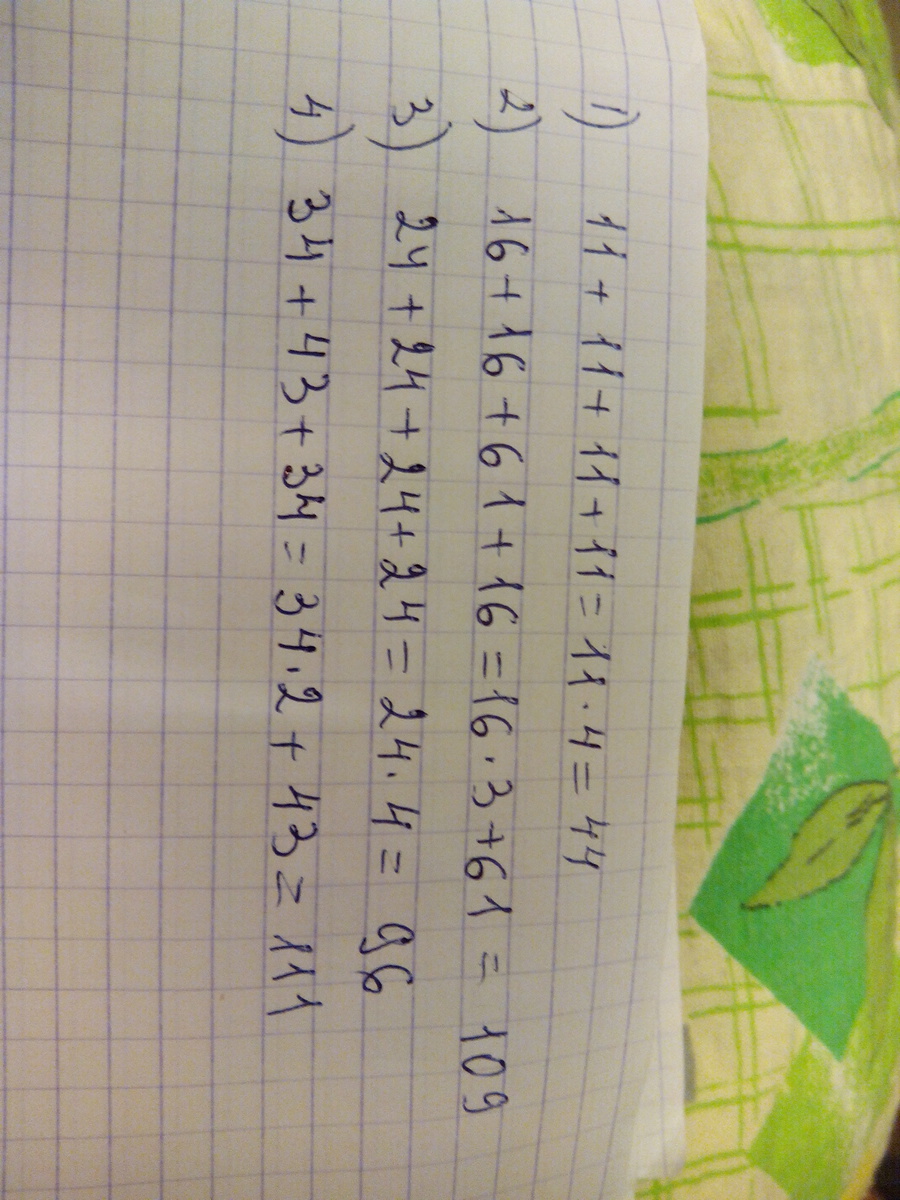 1) 11 + 11 + 11 + 11 = 11 · 4 = 44
2) 16 + 16 + 61 + 16 = 16 · 3 + 61 = 109
3) 24 + 24 + 24 + 24 = 24 · 4 = 96
4) 34 + 43 + 34 = 34 · 2 + 43 = 111